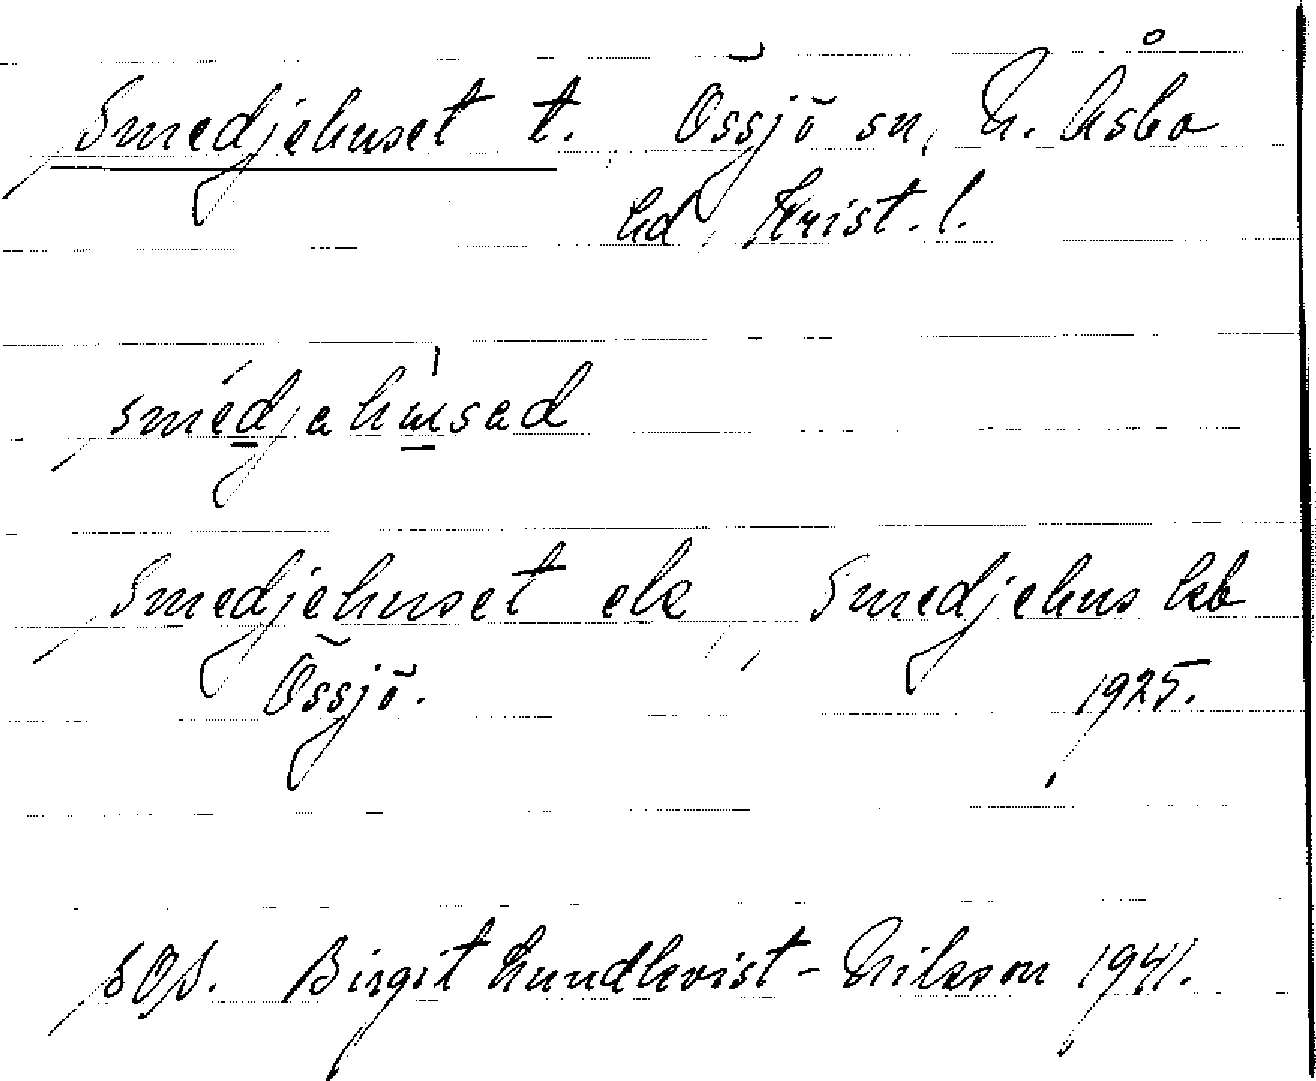 Smedjehuset t. Össjö sn, N. Åsbo
hd, Krist. l.
smedjahusad
Smedjehuset ek, Smedjehus kb
Össjö. 1925.
SOS. Birgit Lundkvist-Nilsson 1941.